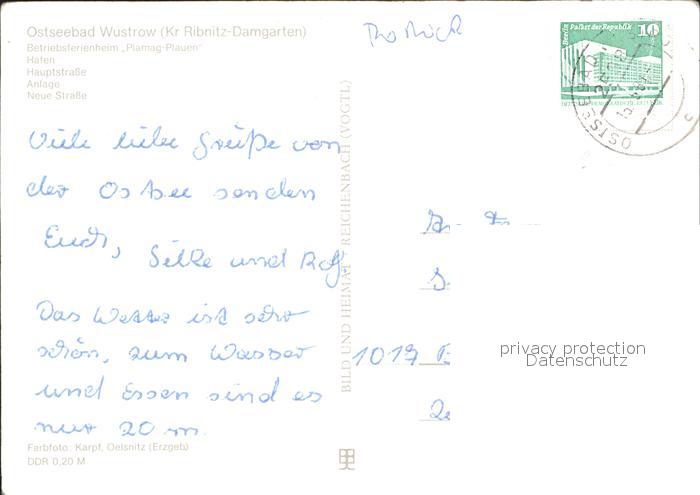 Ostseebad Wustrow (Kr Ribnitz-Damgarten)
Betriebsferienheim „Plamag-Plauen"
Hafen
Hauptstraße
Anlage
Neue Straße
Viele liebe Grüße von
der Ostsee senden
Euch,
Silke und Rolf.
Das Wetter ist sehr
schön, zum Wasser
und Essen sind es
nur 20 m.
Farbfoto: Karpf, Oelsnitz (Erzgeb)
DDR 0,20 M
BILD UND HEIMAT REICHENBACH (VOGTL)
Berlin Palast der Republik
10
OSTSEEBAD
privacy protection
Datenschutz